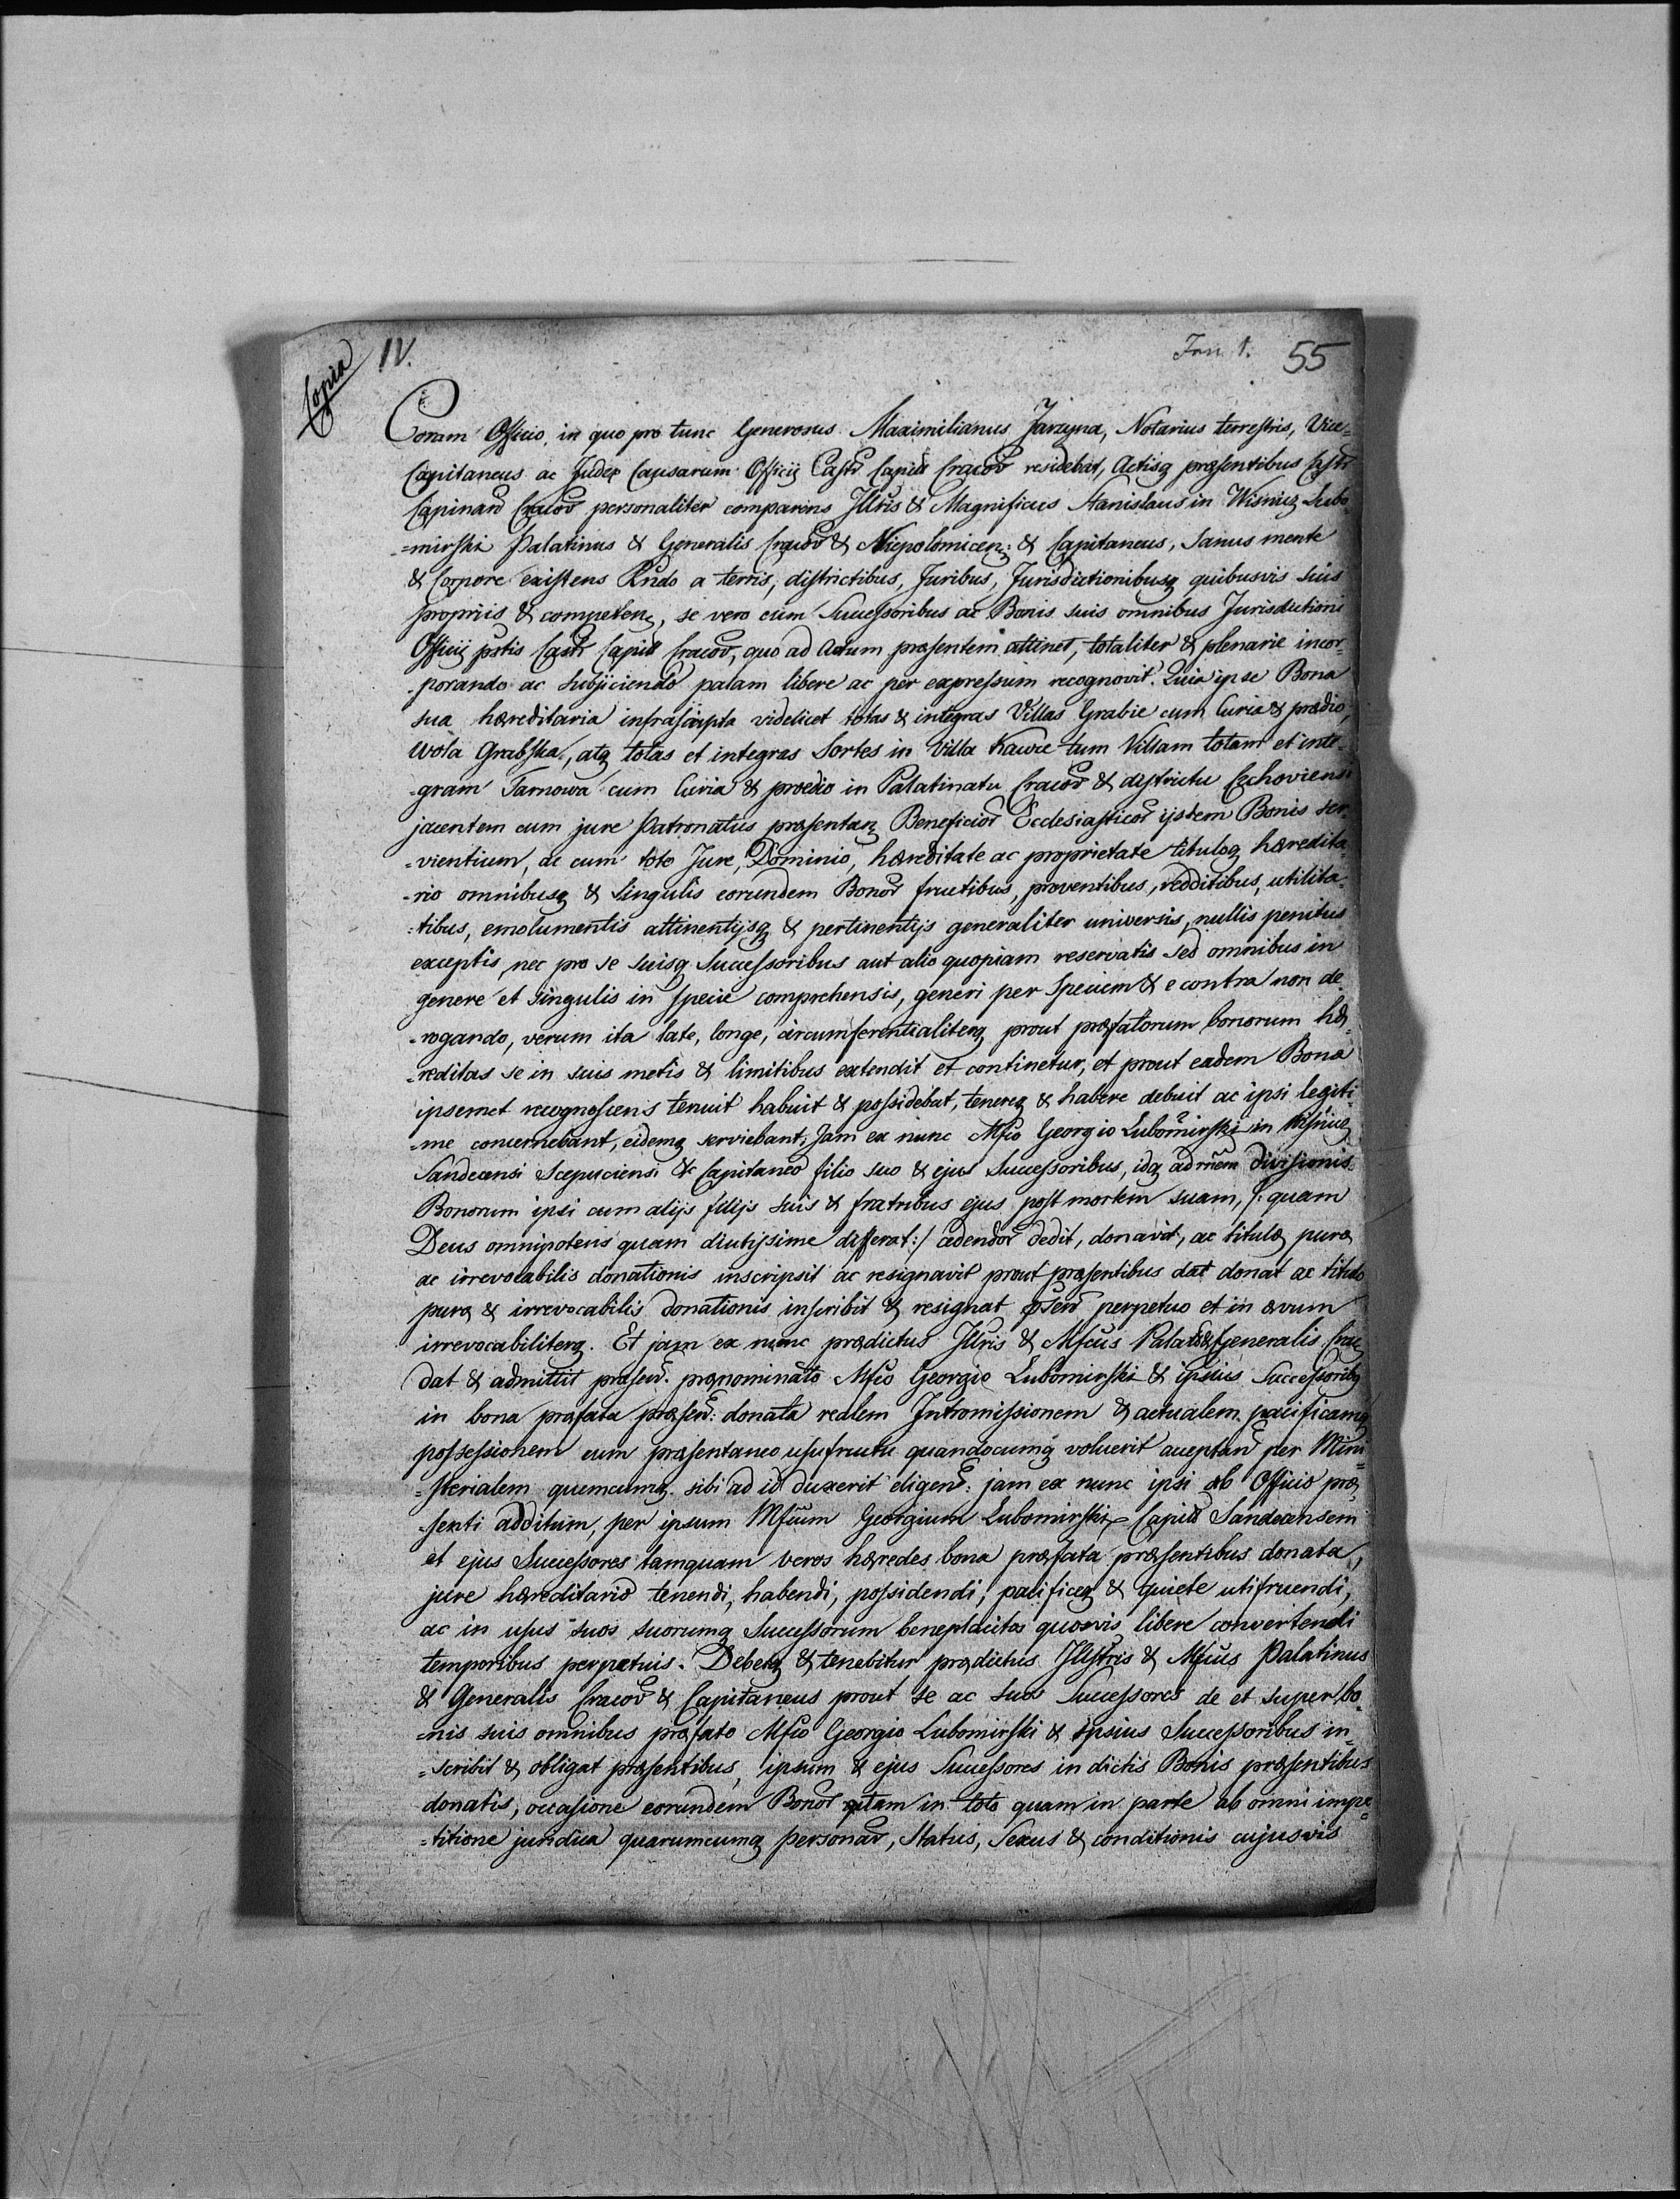 Copia IV. 55
Coram Officio, in quo pro tunc Generosus Maximilianus Jarzyna, Notarius terrestris, Vice=
Capitaneus ac Judex Causarum Officij Castr Capit Cracov residebat, Actisq præsentibus Castr
Capinań Cracov personaliter comparens Jllris & Magnificus Stanislaus in Wisnicz Lubo
=mirski Palatinus & Generalis Cracov & Niepolomicen: & Capitaneus, Sanus mente
& Corpore existens Rndo a terris, districtibus, Juribus, Jurisdictionibusq quibusvis suis
propriis & competen, se vero cum Successoribus ac Bonis suis omnibus Jurisdictioni
Officij pntis Castr Capit Cracov, quo ad actum præsentem attinet, totaliter & plenarie incor=
-porando ac subjiciendo palam libere ac per expressum recognovit. Quia ipse Bona
sua hæreditaria infrascripta videlicet totas & integras Villas Grabie cum Curia & prædio,
Wola Grabska, atq totas et integras Sortes in Villa Kawce tum Villam totam et inte-
-gram Tarnowa cum Curia & prædio in Palatinatu Cracov & districtu Czchoviensi
jacentem cum jure Patronatus præsentan Beneficior Ecclesiasticor ijstem Bonis ser-
=vientium, ac cum toto Jure, Dominio, hæreditate ac proprietate tituloq hæredita=
-rio omnibusq & Singulis eorundem Bonor fructibus, proventibus, redditibus, utilita=
:tibus, emolumentis attinentijsq & pertinentijs generaliter universis, nullis penitus
exceptis, nec pro se suisq Successoribus aut alio quopiam reservatis sed omnibus in
genere et singulis in specie comprehensis, generi per speciem & e contra non de
-rogando, verum ita late, longe, circumferentialiterq prout præfatorum bonorum hæ=
-reditas se in suis metis & limitibus extendit et continetur, et prout eadem Bona
ipsemet recognoscens tenuit habuit & possidebat, tenereq & habere debuit ac ipsi legiti=
-me concernebant, eidemq serviebant, Jam ex nunc Mfco Georgio Lubomirski in Wisnicz
Sandecensi Scepuciensi &c Capitaneo filio suo & ejus Successoribus, idq ad rnem divisionis
Bonorum ipsi cum alijs filijs suis & fratribus ejus post mortem suam, /: quam
Deus omnipotens quam diutissime differat:/ cedendor dedit, donavit, ac titulo puræ
ac irrevocabilis donationis inscripsit ac resignavit prout præsentibus dat donat ac titulo
puræ & irrevocabilis donationis inscribit & resignat præsen perpetuo et in ævum
irrevocabiliterq. Et jam ex nunc prædictus Jllris & Mfcus Palat & Generalis Crac
dat & admittit præsen. prænominato Mfco Georgio Lubomirski & ipsius Successoribq
in bona præfata præsen: donata realem Intromissionem & actualem pacificamq
possessionem cum præsentaneo usufructu quandocumq voluerit acceptan per Mini
=sterialem quemcumq sibi ad id duxerit eligen: jam ex nunc ipsi ab Officio præ
-senti additum, per ipsum Mfcum Georgium Lubomirski Capit Sandecensem
et ejus Successores tamquam veros hæredes bona præfata præsentibus donata,
jure hæreditario tenendi, habendi, possidendi, pacificeq & quiete utifruendi,
ac in usus suos suorumq Successorum beneplacitos quosvis libere convertendi
temporibus perpetuis. Debetq & tenebitur prædictus Jllstris & Mfcus Palatinus
& Generalis Cracov & Capitaneus prout se ac suos Successores de et super bo
-nis suis omnibus præfato Mfco Georgio Lubomirski & ipsius Successoribus in=
=scribit & obligat præsentibus, ipsum & ejus Successores in dictis Bonis præsentibus
donatis, occasione eorundem Bonor tam in toto quam in parte ab omni impe=
=titione juridica quarumcumq personar, Status, Sexus & conditionis cujusvis